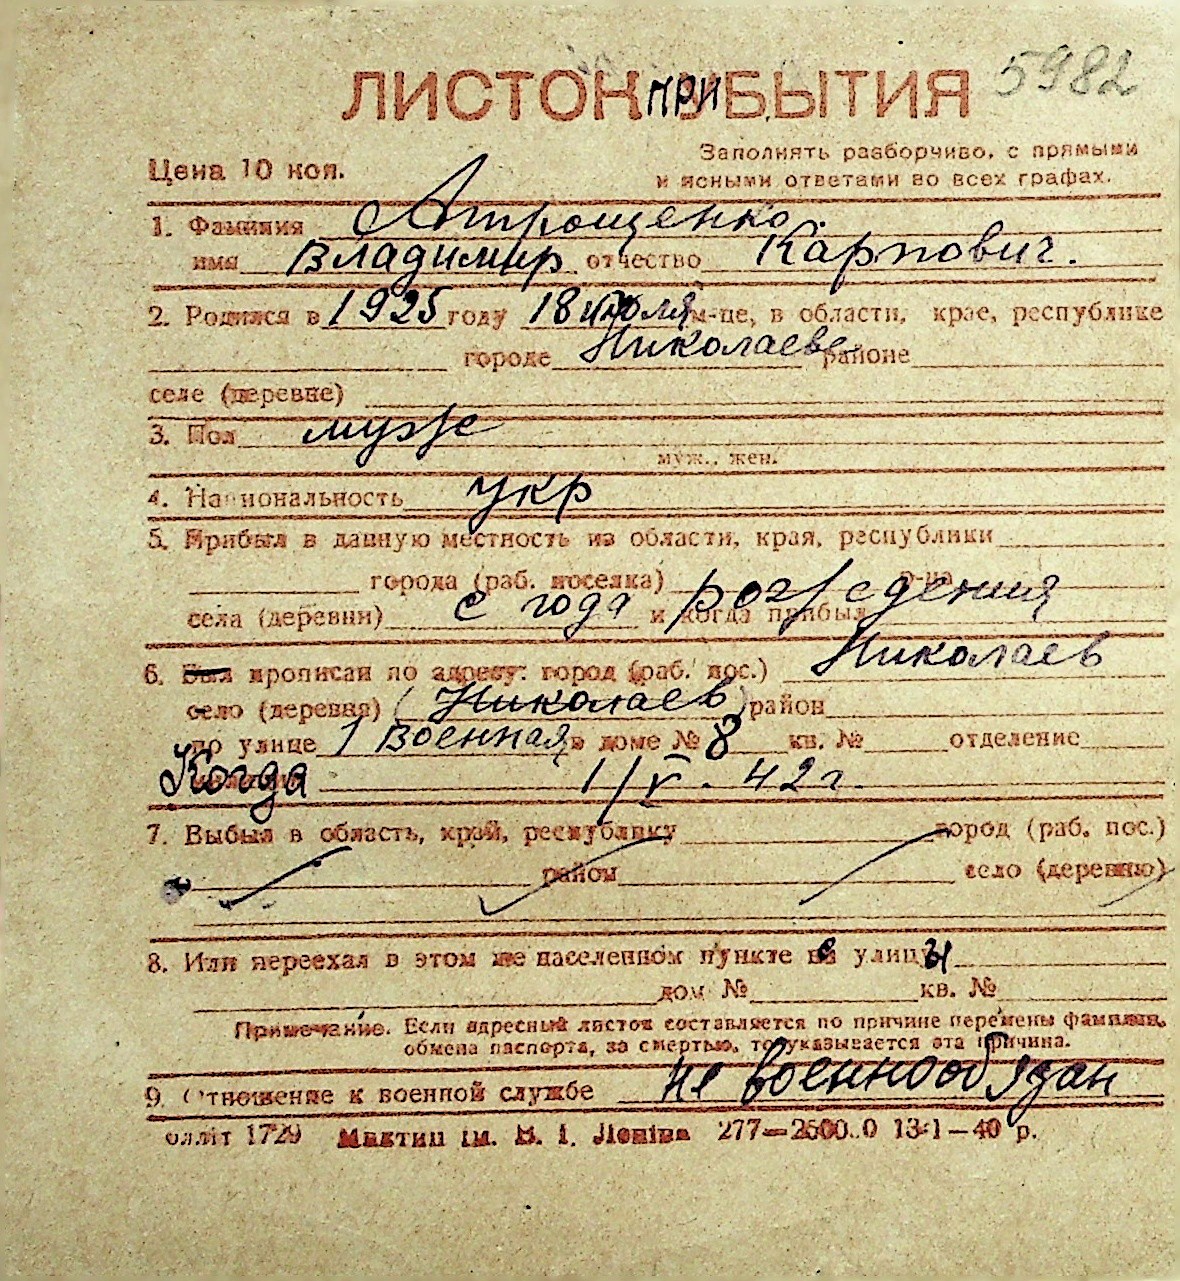 ЛИСТОК ПРИБЫТИЯ 5982
Цена 10 коп. Заполнять разборчиво, с прямыми
и ясными ответами во всех графах.
1. Фамилия Атрощенко
имя Владимир отчество Карпович.
2. Родился в 1925 году 18 июля м-це, в области, крае, республике
городе Николаеве районе
селе (деревне)
3. Пол мужс
муж., жен.
4. Национальность укр
5. Прибыл в данную местность из области, края, республики
города (раб. поселка) р-на
села (деревни) с года рождения и когда прибыл
6. Был прописан по адресу: город (раб. пос.) Николаев
село (деревня) (Николаев) район
по улице 1 Военная в доме № 8 кв. № отделение
Когда 1/V. 42 г.
7. Выбыл в область, край, республику город (раб. пос.)
район село (деревню)
8. Или переехал в этом же населенном пункте с улицы
дом № кв. №
Примечание. Если адресный листок составляется по причине перемены фамилии,
обмена паспорта, за смертью, то указывается эта причина.
9. Отношение к военной службе не военнообязан
олліт 1729 Миктип ім. В. І. Леніна 277—2500.0 13-1—40 р.